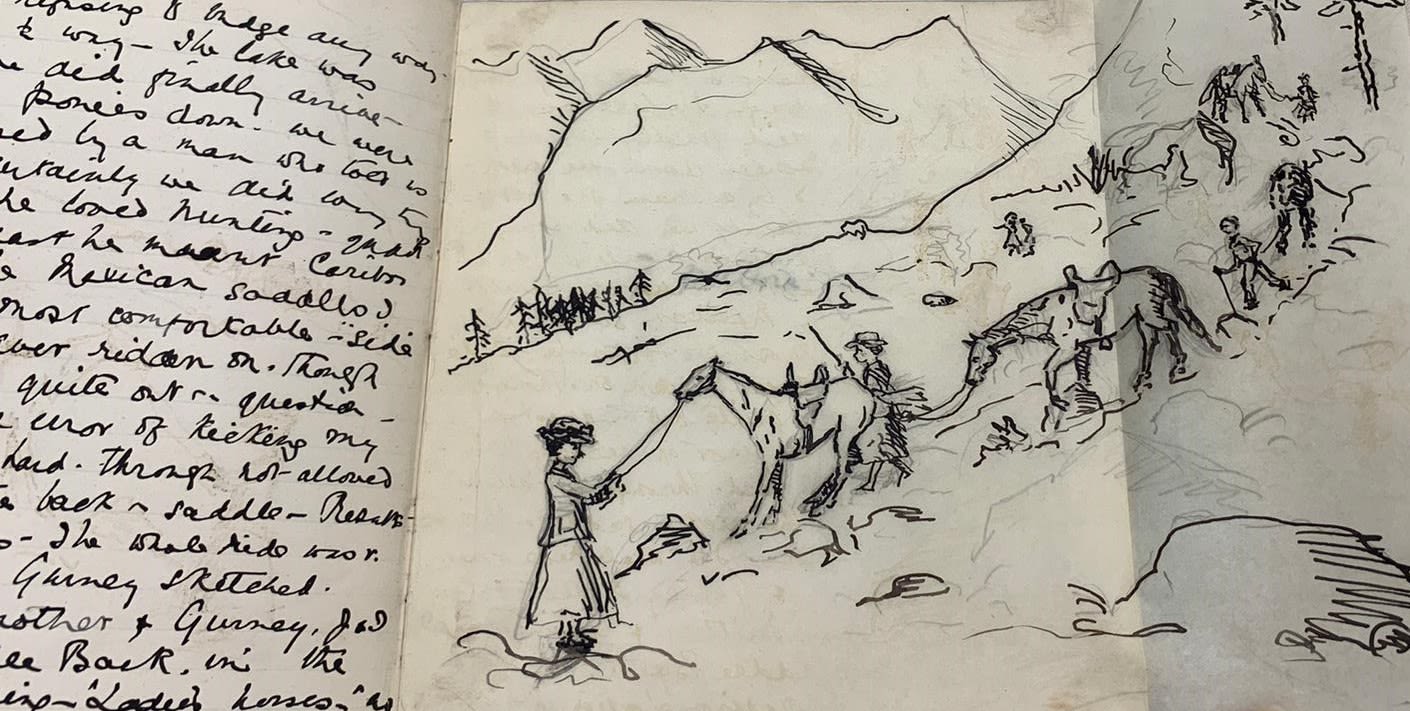 refusing to budge any way
to way – The lake was
we did finally arrive –
ponies down. we were
by a man who told us
certainly we did want to
he loved hunting –
he meant Caribou
Mexican saddles
most comfortable – side
ever ridden on. Though
quite out question –
error of kicking my
hard. Through not allowed
back saddle –
– The whole ride was
Gurney sketched.
mother & Gurney,
Back. in the
– "Ladies horses – "